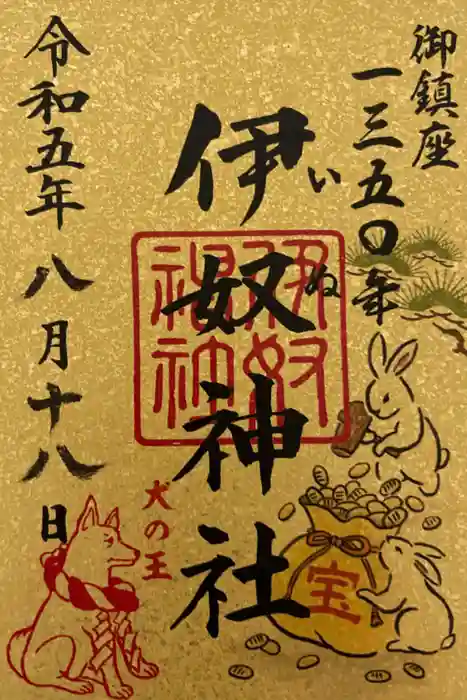 御鎮座
一三五〇年
伊奴神社
いぬ
伊奴神社
犬の王
宝
令和五年八月十八日